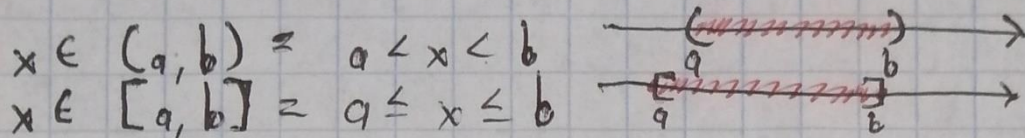 x ∈ (a, b) = a < x < b
a b
x ∈ [a, b] = a ≤ x ≤ b
a b